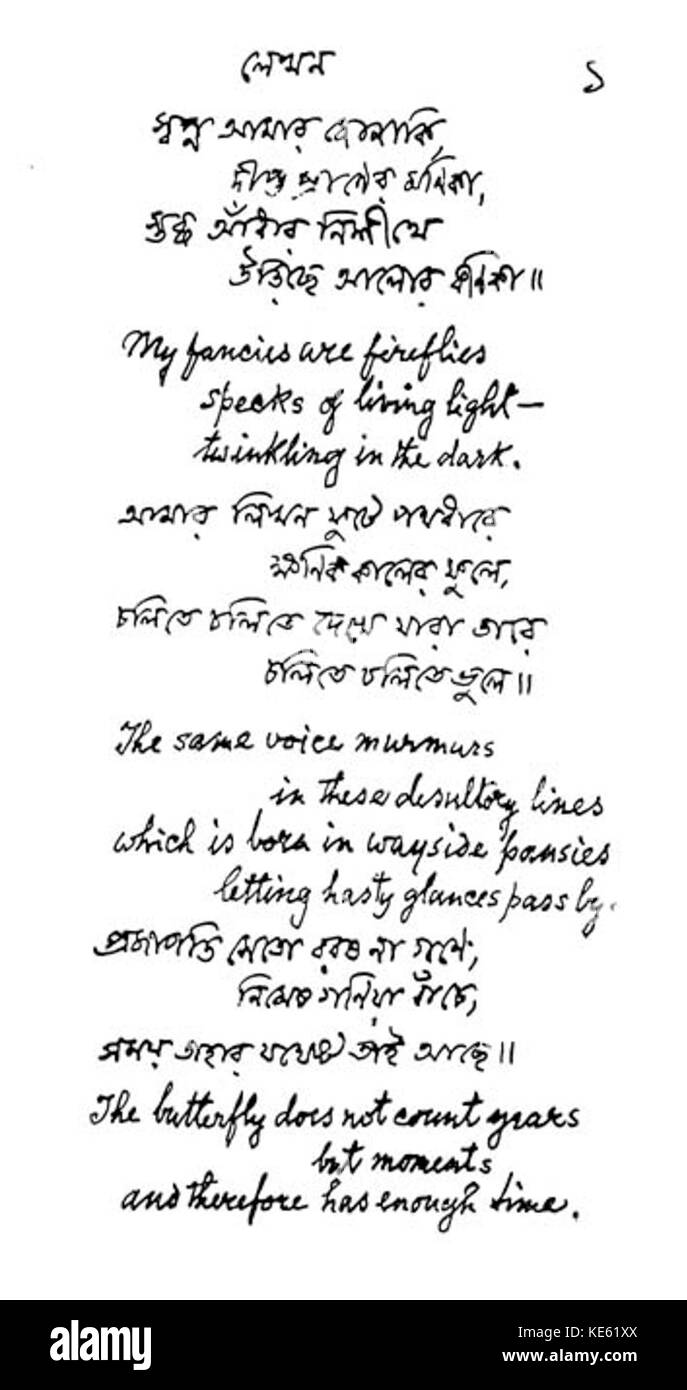 লেখন
১
স্বপ্ন আমার জোনাকি,
দীপ্ত প্রাণের মণিকা,
স্তব্ধ আঁধার নিশীথে
উড়িছে আলোর কণিকা॥
My fancies are fireflies
specks of living light—
twinkling in the dark.
আমার লিখন ফুটে পথধারে
ক্ষণিক কালের ফুলে,
চলিতে চলিতে দেখে যারা তারে
চলিতে চলিতে ভুলে॥
The same voice murmurs
in these desultory lines
which is born in wayside pansies
letting hasty glances pass by.
প্রজাপতি সেতো বরষ না গণে,
নিমেষ গণিয়া বাঁচে,
সময় তাহার যথেষ্ট তাই আছে॥
The butterfly does not count years
but moments
and therefore has enough time.
alamy
Image ID: KE61XX
www.alamy.com